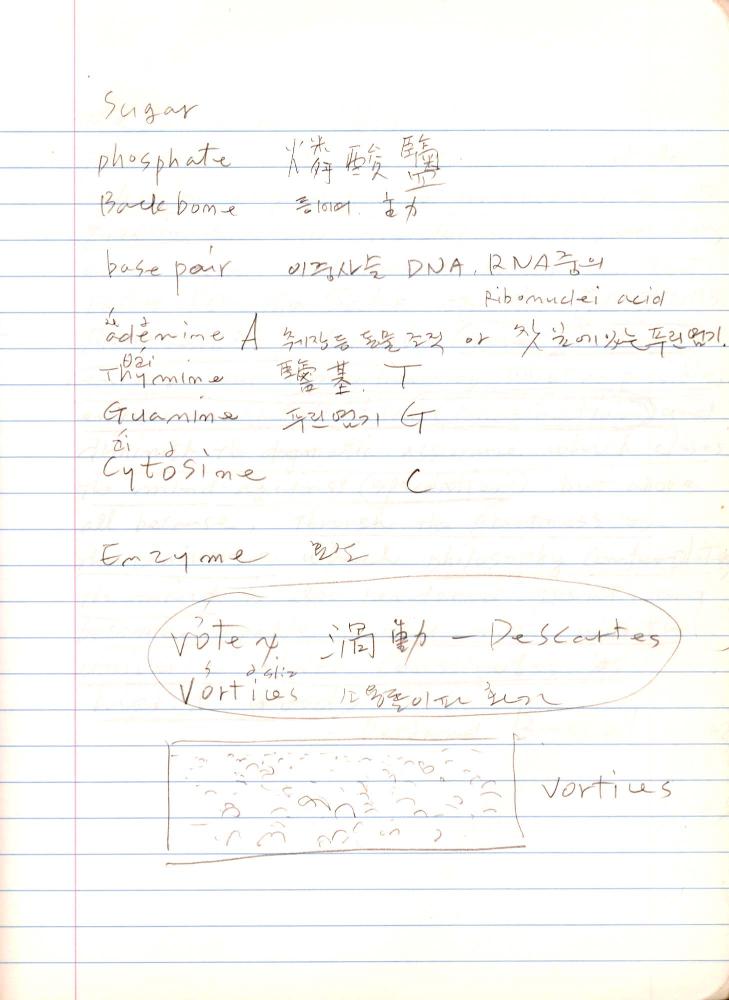 Sugar
phosphate 燐酸鹽
Backbone 등이어. 主力
base pair 이중사슬 DNA, RNA중의
Ribonuclei acid
adenine A 췌장등 동물 조직 아 찻잎에있는 푸린염기.
Thymine 鹽基. T
Guanine 푸린염기 G
Cytosine C
Enzyme 효소
votex 渦動 – Descartes
Vortices
vortices